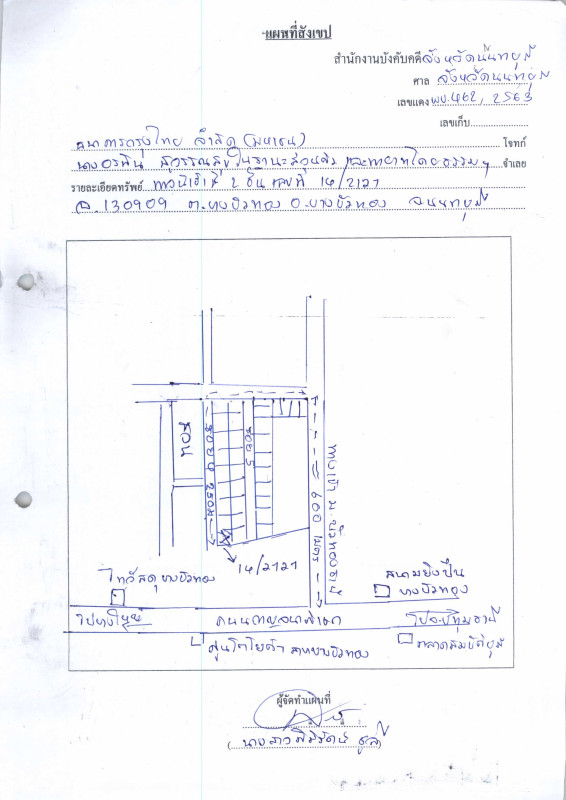 แผนที่สังเขป
สำนักงานบังคับคดีจังหวัดนนทบุรี
ศาล จังหวัดนนทบุรี
เลขแดง ผบ.462, 2563
เลขเก็บ
ธนาคารกรุงไทย จำกัด (มหาชน) โจทก์
นางอรพิน สุวรรณสุข ในฐานะส่วนตัว และทายาทโดยธรรมฯ จำเลย
รายละเอียดทรัพย์ ทาวน์เฮ้าส์ 2 ชั้น เลขที่ 14/2127
ฉ.130909 ต.บางบัวทอง อ.บางบัวทอง จ.นนทบุรี
สวน
ซอย 4 250ม
ซอย 5
600 เมตร
ทางเข้า ม.บัวทองธานี
14/2127
ไทวัสดุ บางบัวทอง
สนามยิงปืน
บางบัวทอง
ไปบางใหญ่
ถนนกาญจนาภิเษก
ไปจ.ปทุมธานี
ศูนโตโยต้า สาขาบางบัวทอง
ตลาดสมบัติบุรี
ผู้จัดทำแผนที่